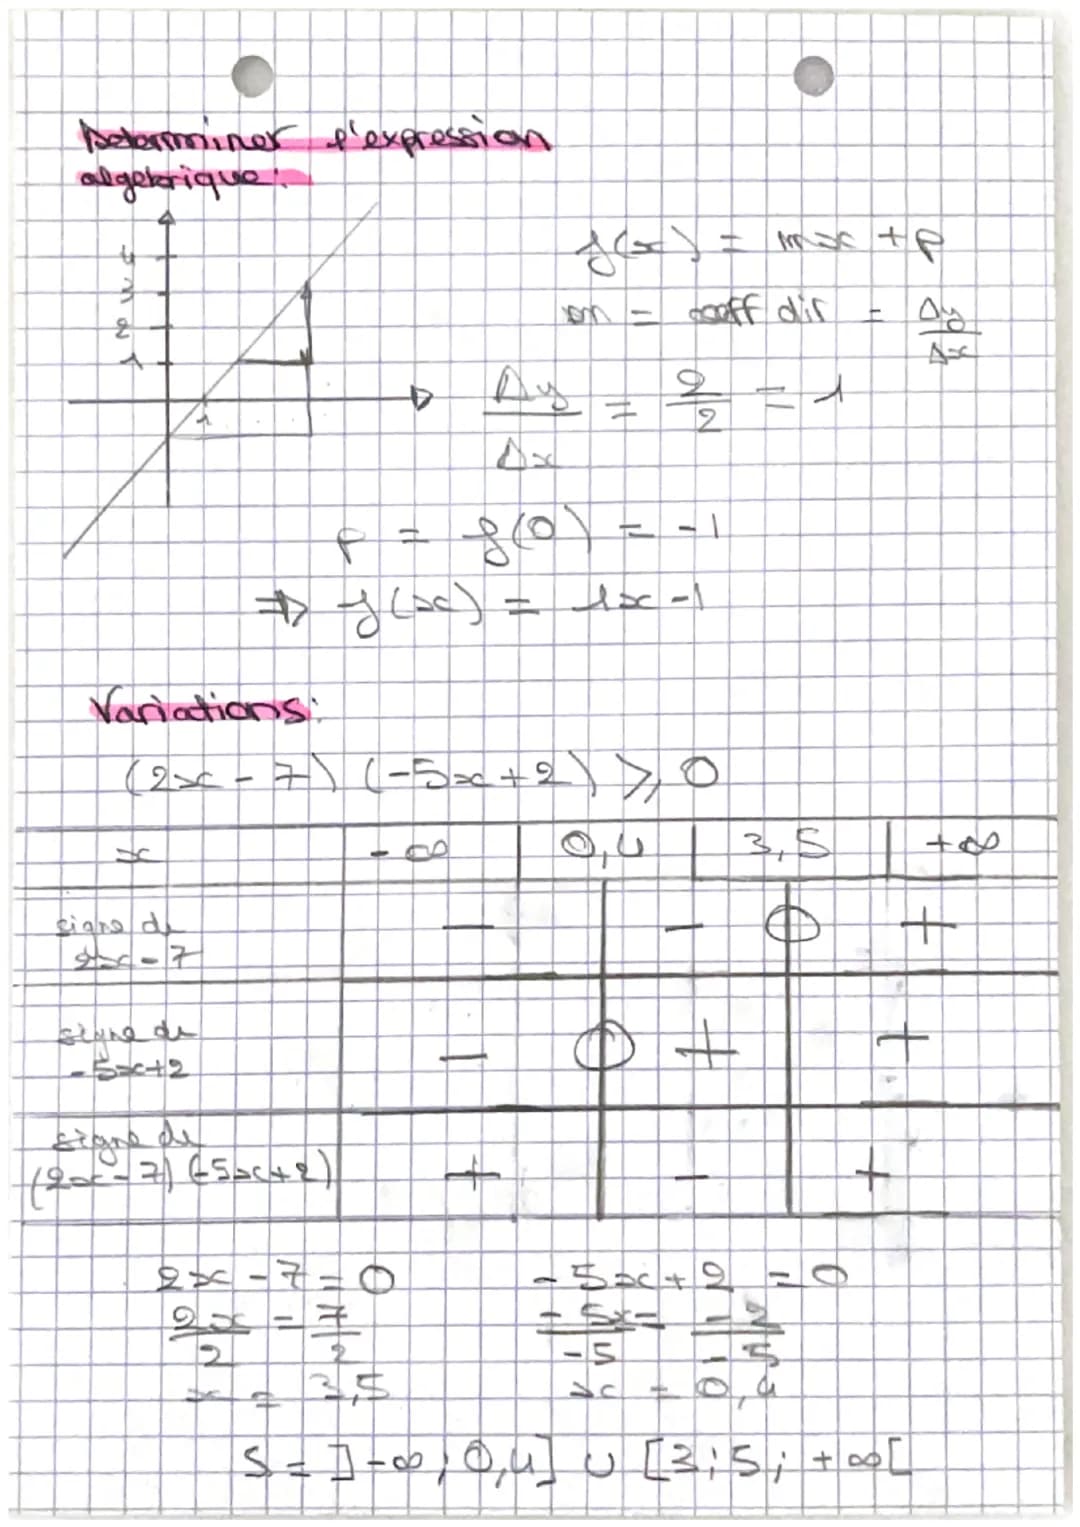 Determiner l'expression
algebrique:
4
3
2
1
1
f(x) = mx + p
m = coeff dir = Δy/Δx
Δy/Δx = 2/2 = 1
p = f(0) = -1
⇒ f(x) = 1x - 1
Variations:
(2x - 7) (-5x + 2) ⩾ 0
x | -∞ | 0,4 | 3,5 | +∞
signe de 2x - 7 | - | - 0 +
signe de -5x+2 | - 0 + | +
signe de (2x - 7) (-5x+2) | + | - | +
2x - 7 = 0
2x/2 = 7/2
x = 3,5
-5x + 2 = 0
-5x/-5 = -2/-5
x = 0,4
S = ]-∞ ; 0,4] ∪ [3;5; +∞[